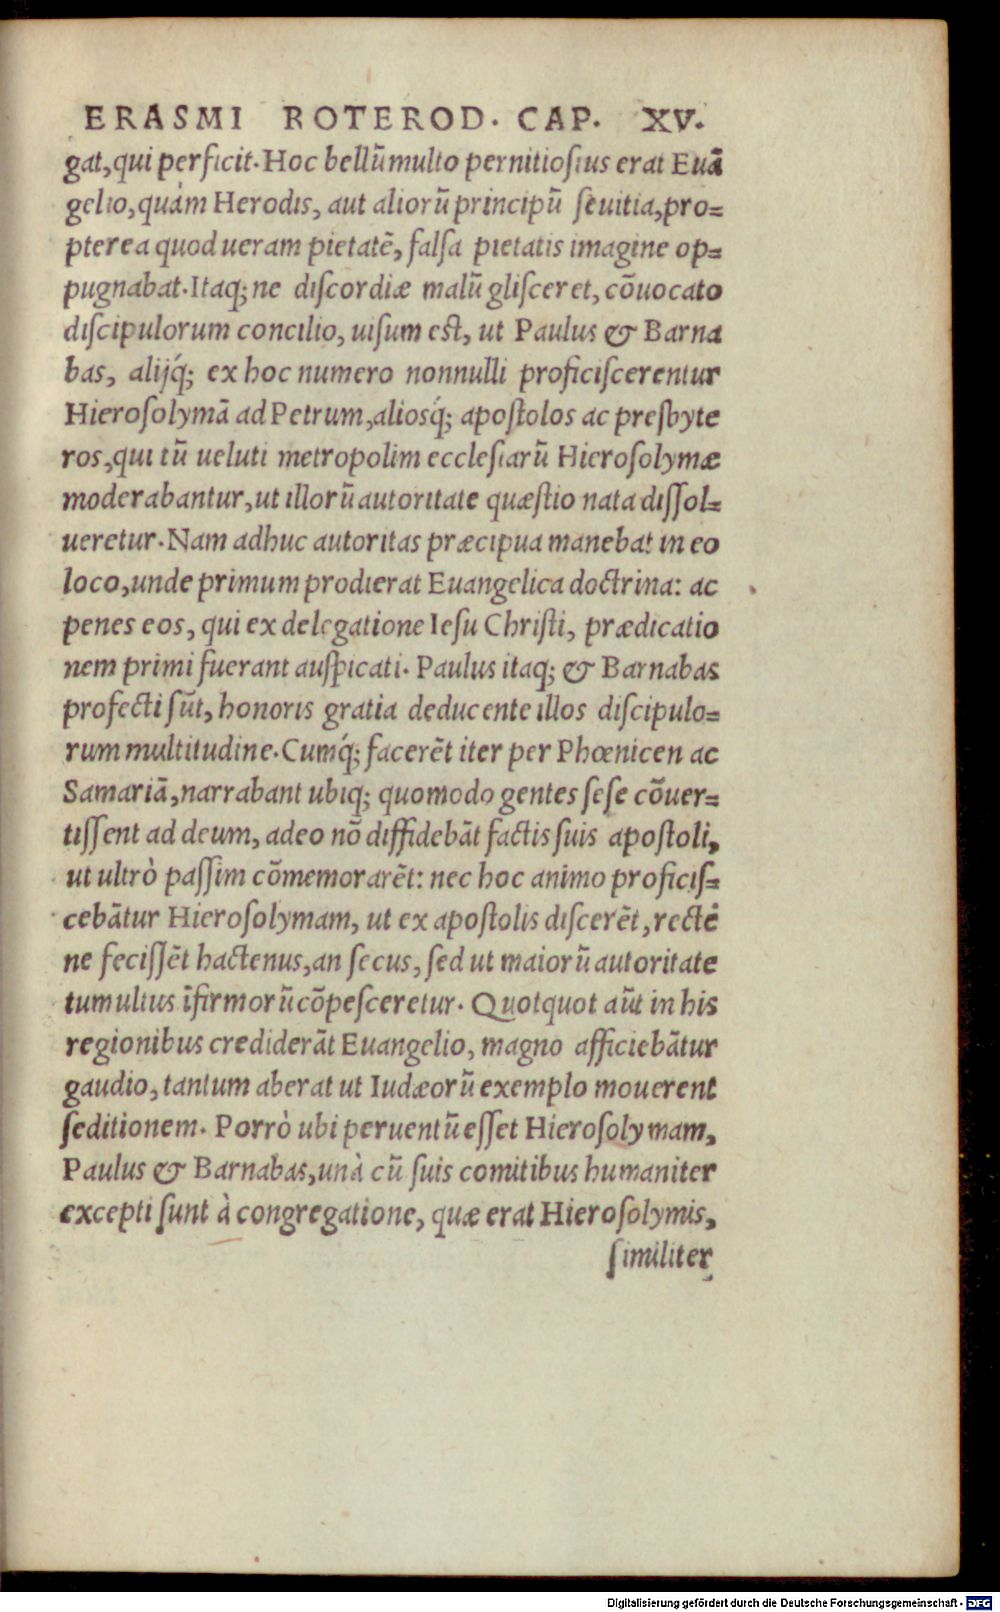 ERASMI ROTEROD. CAP. XV.
gat, qui perficit. Hoc bellũ multo pernitiosius erat Euã
gelio, quàm Herodis, aut aliorũ principũ seuitia, pro=
pterea quod ueram pietatẽ, falsa pietatis imagine op=
pugnabat. Itaq; ne discordiæ malũ glisceret, cõuocato
discipulorum concilio, uisum est, ut Paulus & Barna
bas, alijq́; ex hoc numero nonnulli proficiscerentur
Hierosolymã ad Petrum, aliosq́; apostolos ac presbyte
ros, qui tũ ueluti metropolim ecclesiarũ Hierosolymæ
moderabantur, ut illorũ autoritate quæstio nata dissol=
ueretur. Nam adhuc autoritas præcipua manebat in eo
loco, unde primum prodierat Euangelica doctrina: ac
penes eos, qui ex delegatione Iesu Christi, prædicatio
nem primi fuerant auspicati. Paulus itaq; & Barnabas
profecti sũt, honoris gratia deducente illos discipulo=
rum multitudine. Cumq́; facerẽt iter per Phœnicen ac
Samariã, narrabant ubiq; quomodo gentes sese cõuer=
tissent ad deum, adeo nõ diffidebãt factis suis apostoli,
ut ultrò passim cõmemorarẽt: nec hoc animo proficis=
cebãtur Hierosolymam, ut ex apostolis discerẽt, rectè
ne fecissẽt hactenus, an secus, sed ut maiorũ autoritate
tumultus ĩfirmorũ cõpesceretur. Quotquot aũt in his
regionibus crediderãt Euangelio, magno afficiebãtur
gaudio, tantum aberat ut Iudæorũ exemplo mouerent
seditionem. Porrò ubi peruentũ esset Hierosolymam,
Paulus & Barnabas, unà cũ suis comitibus humaniter
excepti sunt à congregatione, quæ erat Hierosolymis,
similiter
Digitalisierung gefördert durch die Deutsche Forschungsgemeinschaft - DFG